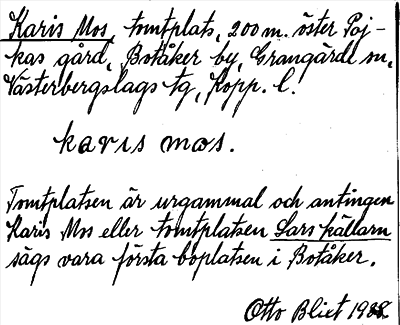 Karis Mos, tomtplats, 200 m. öster Poj-
kas gård, Botåker by, Grangärde sn,
Västerbergslags tg, Kopp. l.
karis mos.
Tomtplatsen är urgammal och antingen
Karis Mos eller tomtplatsen Lars källarn
sägs vara första boplatsen i Botåker.
Otto Blixt